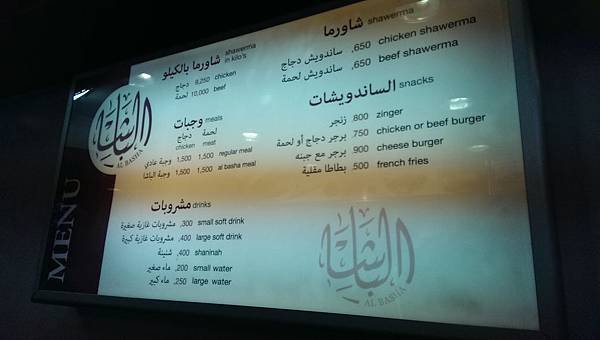 شاورما shawerma
ساندويش دجاج ,650 chicken shawerma
ساندويش لحمة ,650 beef shawerma
الساندويشات snacks
زنجر .800 zinger
برجر دجاج أو لحمة 750 chicken or beef burger
برجر مع جبنه 900 cheese burger
بطاطا مقلية .500 french fries
شاورما بالكيلو shawerma in kilo's
دجاج 9,250 chicken
لحمة 10,000 beef
وجبات meals
دجاج لحمة
chicken meat
وجبة عادي 1,500 1,500 regular meal
وجبة الباشا 1,500 1,500 al basha meal
مشروبات drinks
مشروبات غازية صغيرة ,300 small soft drink
مشروبات غازية كبيرة ,400 large soft drink
شنينة ,400 shaninah
ماء صغير ,200 small water
ماء كبير ,250 large water
الباشا
AL BASHA
MENU
الباشا
AL BASHA